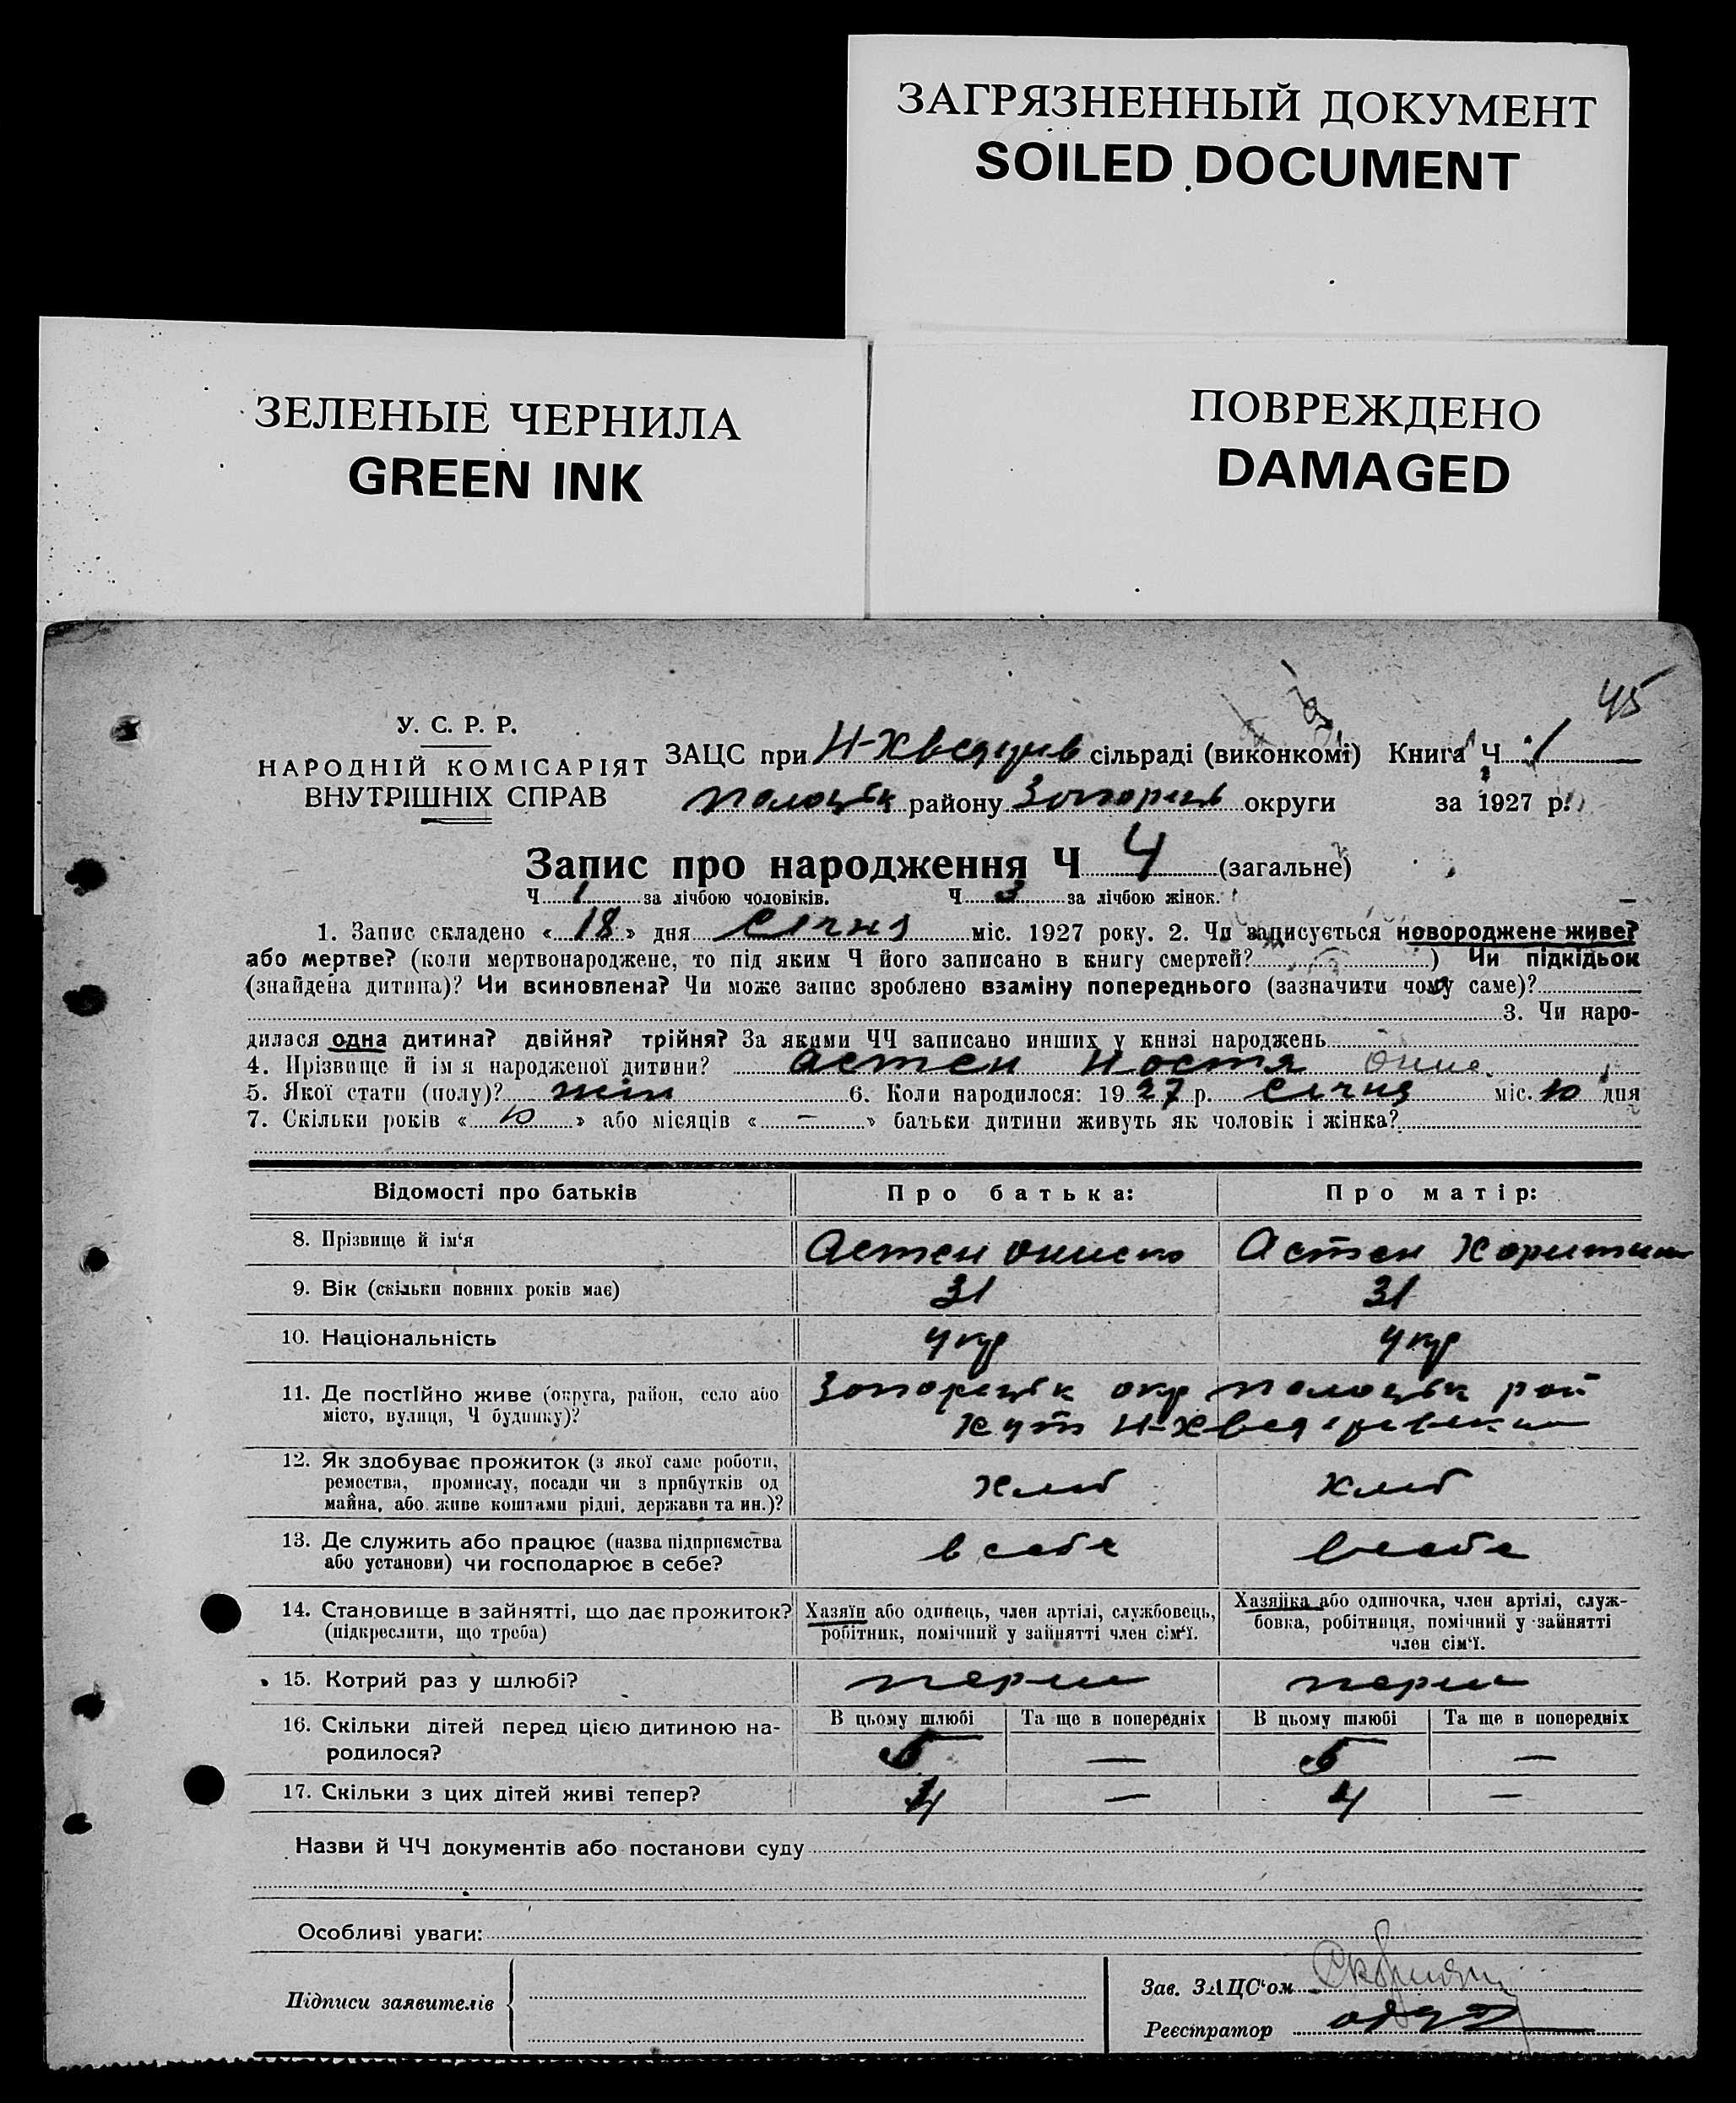 ЗАГРЯЗНЕННЫЙ ДОКУМЕНТ
SOILED DOCUMENT
ЗЕЛЕНЫЕ ЧЕРНИЛА
GREEN INK
ПОВРЕЖДЕНО
DAMAGED
45
У. С. Р. Р.
НАРОДНІЙ КОМІСАРІЯТ
ВНУТРІШНІХ СПРАВ
ЗАЦС при Н-Хведорів сільраді (виконкомі) Книга Ч 1
Пологськ району Запорізь округи за 1927 р.
Запис про народження Ч 4 (загальне)
Ч 1 за лічбою чоловіків. Ч 3 за лічбою жінок.
1. Запис складено « 18 » дня січня міс. 1927 року. 2. Чи записується новороджене живе?
або мертве? (коли мертвонароджене, то під яким Ч його записано в книгу смертей? ) Чи підкідьок
(знайдена дитина)? Чи всиновлена? Чи може запис зроблено взаміну попереднього (зазначити чому саме)?
3. Чи наро-
дилася одна дитина? двійня? трійня? За якими ЧЧ записано инших у книзі народжень
4. Прізвище й ім я народженої дитини? Астен Настя
5. Якої стати (полу)? жін 6. Коли народилося: 1927 р. січня міс. 10 дня
7. Скільки років « 10 » або місяців « — » батьки дитини живуть як чоловік і жінка?
Відомості про батьків Про батька: Про матір:
8. Прізвище й ім‘я Астен Ониско Астен Харитина
9. Вік (скільки повних років має) 31 31
10. Національність укр укр
11. Де постійно живе (округа, район, село або
місто, вулиця, Ч будинку)?
окр рай
12. Як здобуває прожиток (з якої саме роботи,
ремества, промислу, посади чи з прибутків од
майна, або живе коштами рідні, держави та ин.)?
хліб хліб
13. Де служить або працює (назва підприємства
або установи) чи господарює в себе?
в себе в себе
14. Становище в зайнятті, що дає прожиток?
(підкреслити, що треба)
Хазяїн або одинець, член артілі, службовець,
робітник, помічний у зайнятті член сім‘ї.
Хазяйка або одиночка, член артілі, служ-
бовка, робітниця, помічний у зайнятті
член сім‘ї.
15. Котрий раз у шлюбі? перш перш
16. Скільки дітей перед цією дитиною на-
родилося?
В цьому шлюбі Та ще в попередніх В цьому шлюбі Та ще в попередніх
5 — 5 —
17. Скільки з цих дітей живі тепер? 4 — 4 —
Назви й ЧЧ документів або постанови суду
Особливі уваги:
Підписи заявителів
Зав. ЗАЦС‘ом
Реєстратор